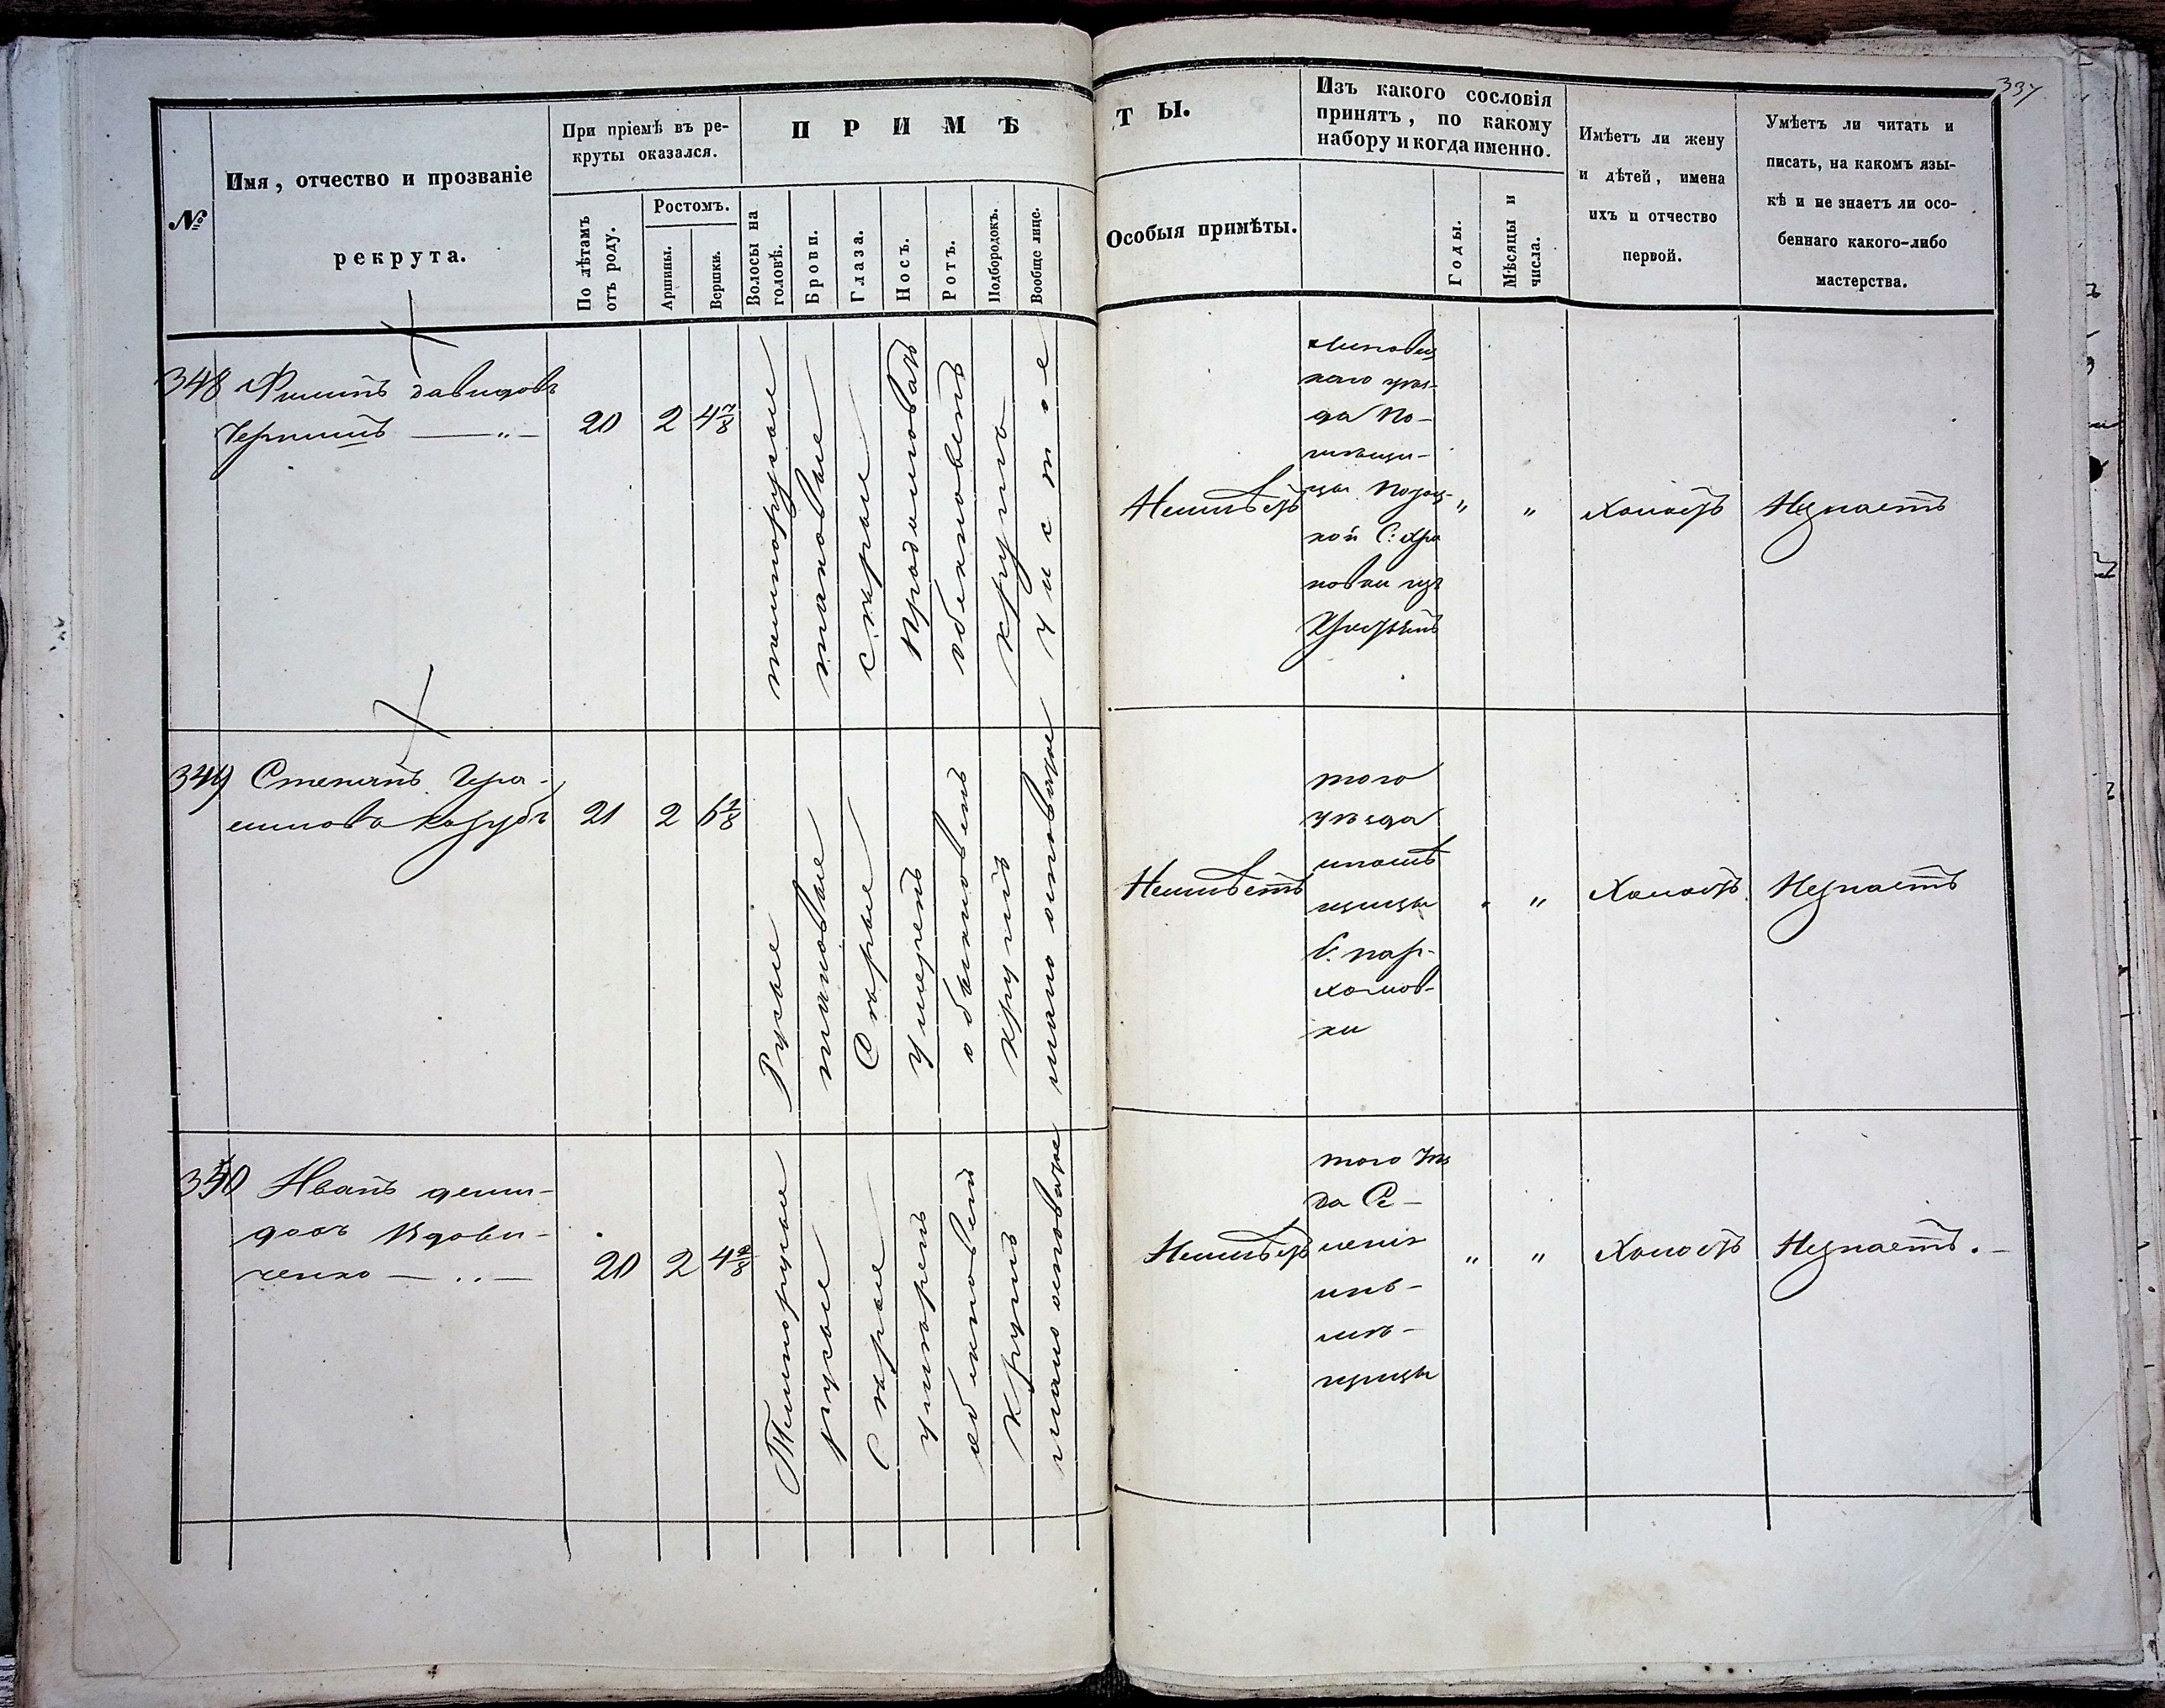 337
№
Имя, отчество и прозваніе
рекрута.
При пріемѣ въ ре-
круты оказался.
По лѣтамъ
отъ роду.
Ростомъ.
Аршины.
Вершки.
ПРИМѢ
Волосы на
головѣ.
Брови.
Глаза.
Носъ.
Ротъ.
Подбородокъ.
Вообще лице.
ТЫ.
Особыя примѣты.
Изъ какого сословія
принятъ, по какому
набору и когда именно.
Годы.
Мѣсяцы и
числа.
Имѣетъ ли жену
и дѣтей, имена
ихъ и отчество
первой.
Умѣетъ ли читать и
писать, на какомъ язы-
кѣ и не знаетъ ли осо-
беннаго какого-либо
мастерства.
348 Филипъ Давидовъ
20 2 4 7/8
темнорусые
таковые
сѣрые
продолговатъ
обекновенъ
кругло
чистое
Неимѣетъ
каго уѣз-
да По-
мѣщи-
цы
кой С:
новки изъ
Крестьянъ
" "
Холостъ
Незнаетъ
349 Степанъ Гера-
симовъ
21 2
Русые
таковые
Сѣрые
умѣренъ
обыкновенъ
круглъ
мало осповатое
Неимѣетъ
того
уѣзда
помѣ
щицы
С. пар-
хомов-
ки
"
Холостъ
Незнаетъ
350 Иванъ деми-
довъ Вдови-
ченко
20 2
Темнорусые
русые
Сѣрые
умѣренъ
обекновенъ
круглъ
мало осповатое
Неимѣетъ
того уѣз
да
мѣ-
щицы
" "
Холостъ
Незнаетъ.